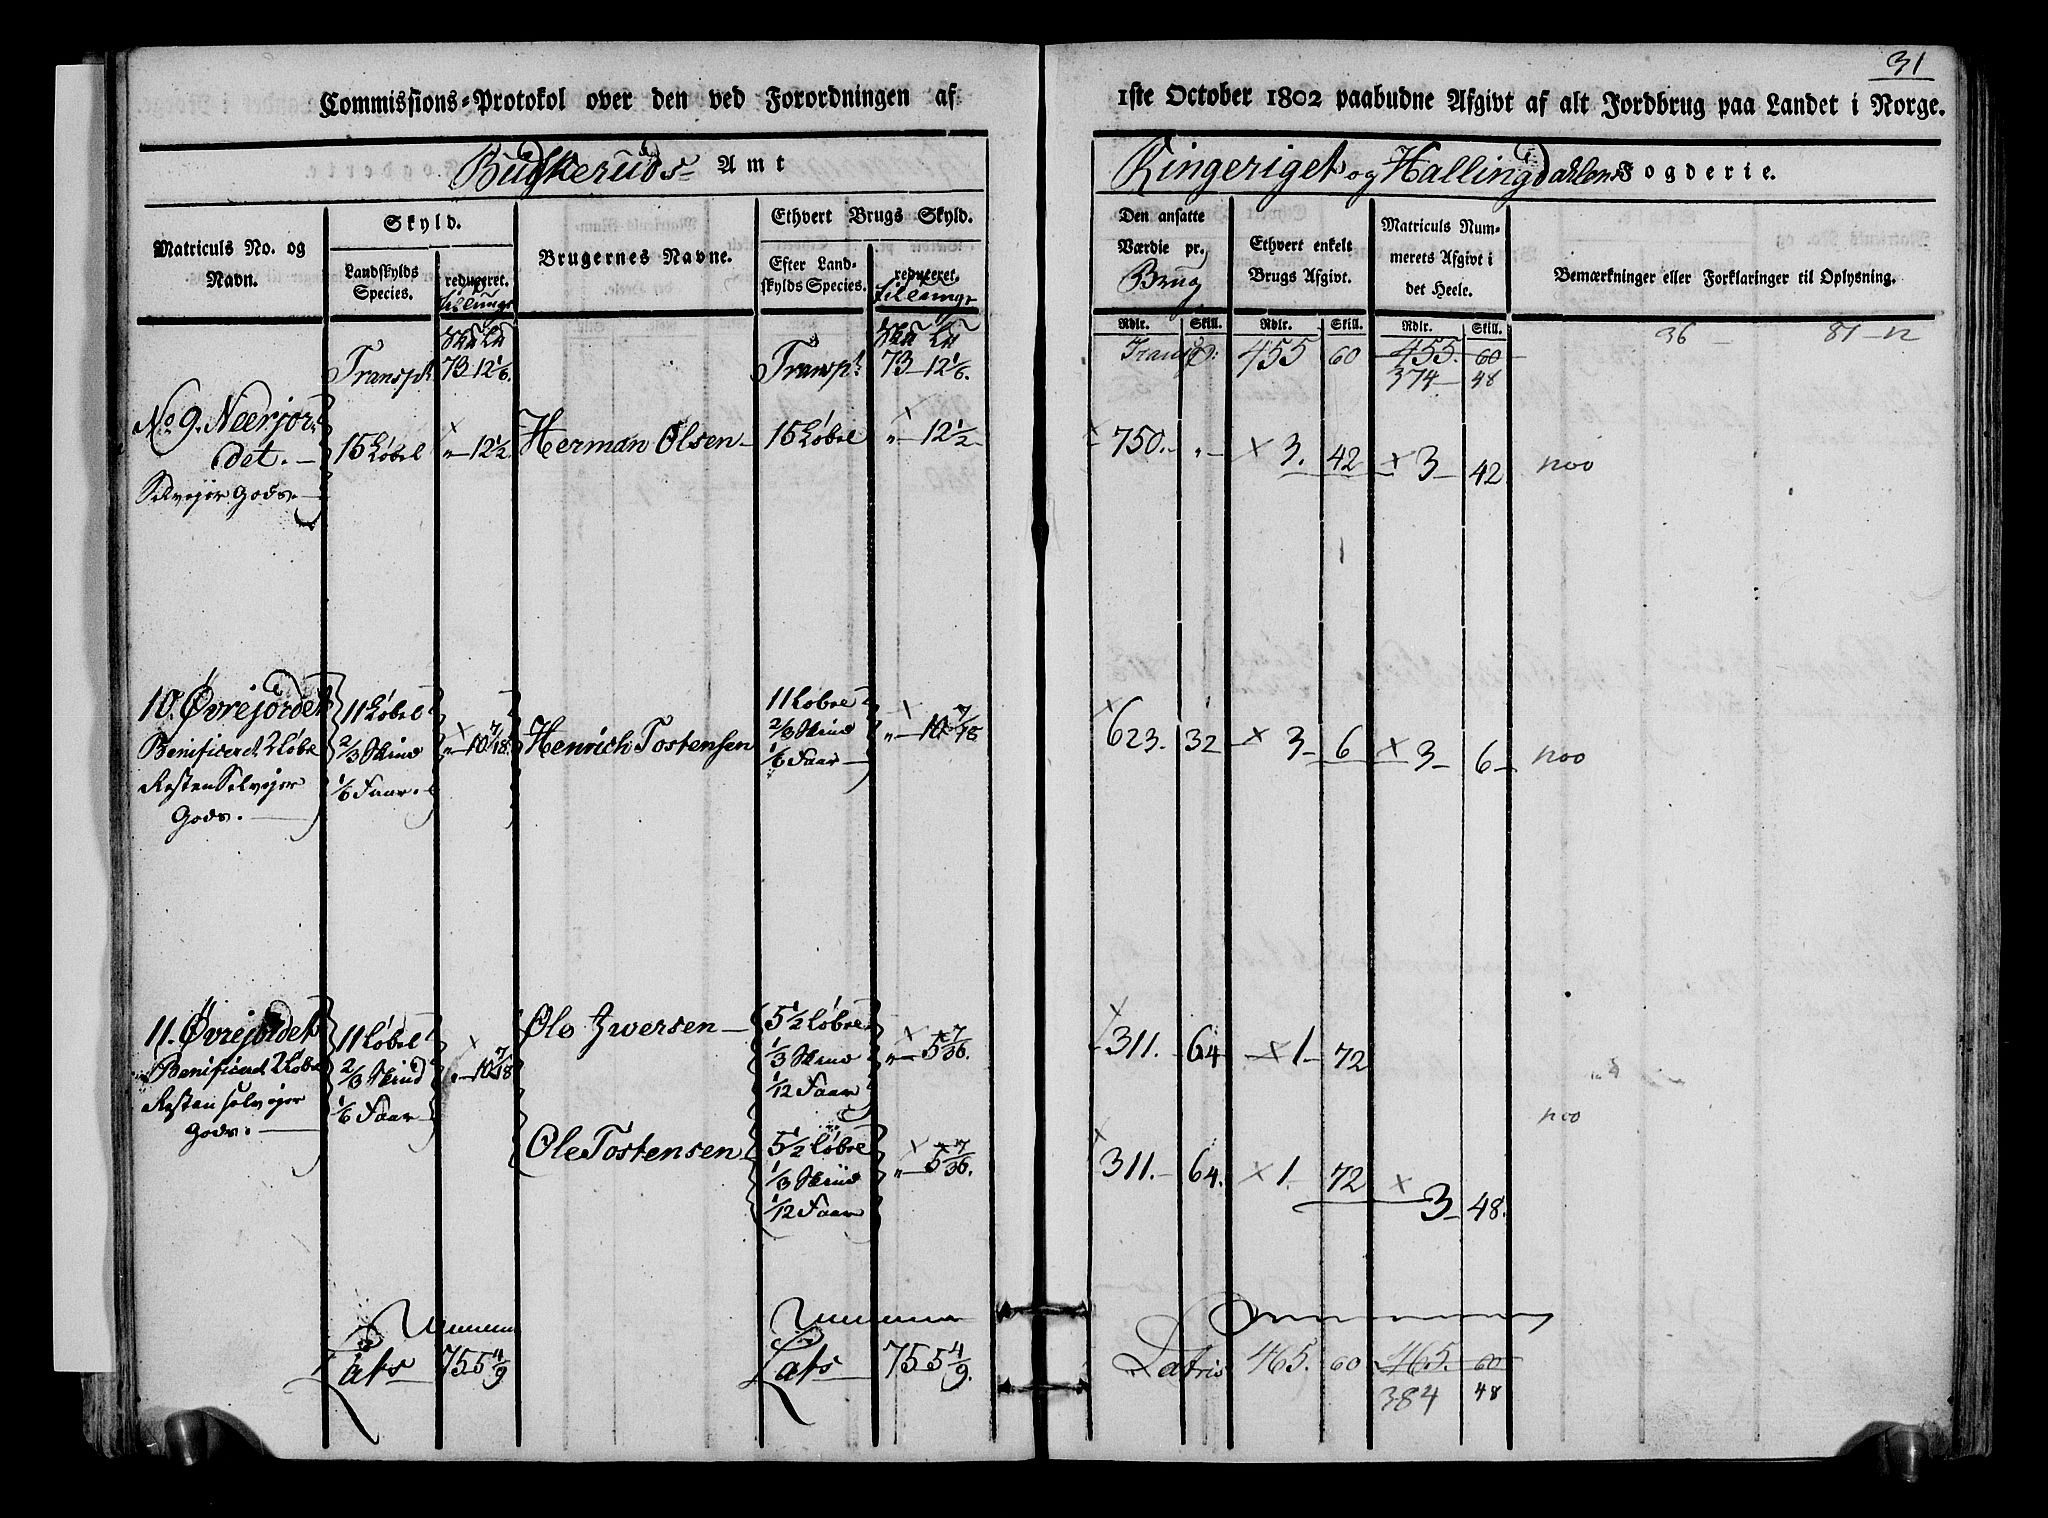 31
Commissions-Protokol over den ved Forordningen af
1ste October 1802 paabudne Afgivt af alt Jordbrug paa Landet i Norge.
Budskeruds Amt
Ringeriget og Hallingdahlens Fogderie.
Matriculs No. og Navn.
Skyld.
Landskylds Species.
reduceret.
Brugernes Navne.
Ethvert Brugs Skyld.
Efter Landskylds Species.
reduceret.
Den ansatte Værdie pr. Brug
Ethvert enkelt Brugs Afgivt.
Matriculs Nummerets Afgivt i det Heele.
Bemærkninger eller Forklaringer til Oplysning.
Rdlr. Skill. Rdlr. Skill. Rdlr. Skill.
Transpt 73 - 12 1/6. Transpt 73 - 12 1/6. Transp: 455 60 455. 60 36 81 - 12
374 48
No 9. Neerjor-
det. 15 Løbel " - 12 1/2. Herman Olsen 15 Løbel " - 12 1/2 750. " - 3. 42 3 42 noo
Selvejer Gods.
10. Øvrejordet 11 Løbel 11 Løbel
Benificeret 2 Løbe 2/3 Skind " - 10 7/18. Henrich Tostensen 2/3 Skind " - 10 7/18 623. 32 3 6 3 6 noo
Resten Selvejer 1/6 Faar. 1/6 Faar
Gods.
11. Øvrejordet 11 Løbel Ole Iwersen 5 1/2 Løbel
Benificeret 2 Løbe 2/3 Skind " - 10 7/18 1/3 Skind " - 5 7/36. 311. 64 1 72
Resten selvejer 1/6 Faar 1/12 Faar
Gods. noo
Ole Tostensen 5 1/2 Løbel
1/3 Skind " - 5 7/36. 311. 64. 1. 72 3 48.
1/12 Faar
Lats 75 5 4/9 Lats 75 5 4/9. Latris 465. 60 465. 60
384 48